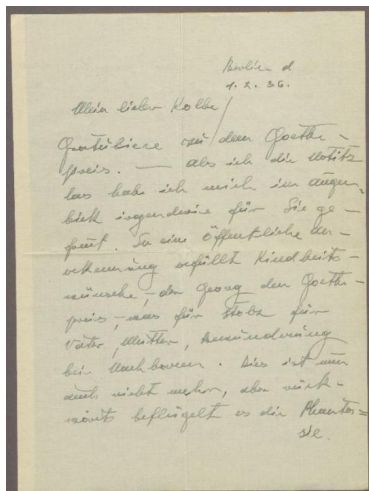 Berlin d
1.2.36.
Mein lieber Kolbe!
Gratuliere zu dem Goethe-
preis. — Als ich die Notiz
las habe ich mich im Augen-
blick irgendwie für Sie ge-
freut. So eine öffentliche An-
erkennung erfüllt Kindheits-
wünsche, der Georg den Goethe-
preis, was für Stolz für
Vater, Mutter, Bewunderung
bei Nachbarn. Dies ist nun
auch nicht mehr, aber rück-
wärts beflügelt es die Phanta-
sie.